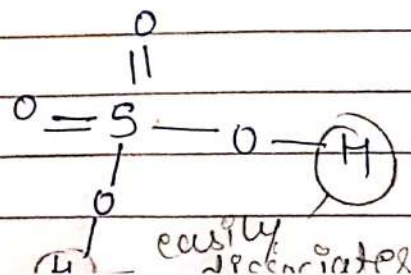 O
||
O = S — O — H
O
H easily
dissociates